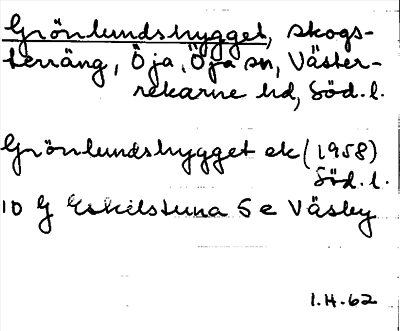 Grönlundshygget, skogs-
terräng, Öja, Öja sn, Väster-
rekarne hd, Söd.l.
Grönlundshygget ek (1958)
Söd.l.
10 G Eskilstuna S e Väsby
1.H.62